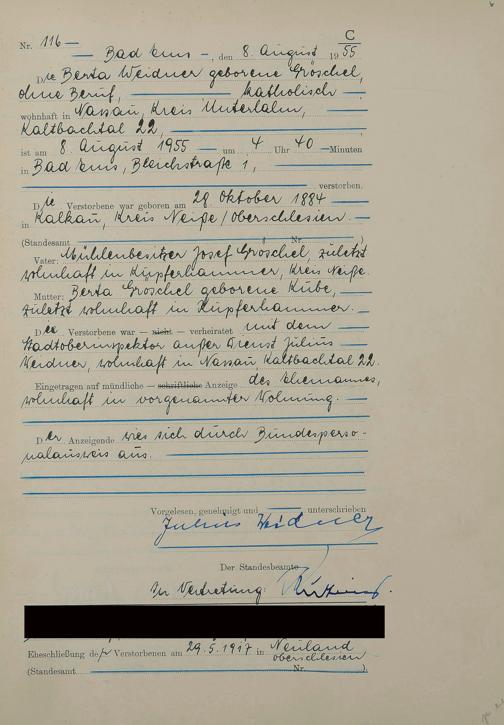 C
Nr. 116
Bad Ems, den 8. August 1955
Die Berta Weidner geborene Gröschel,
ohne Beruf, katholisch
wohnhaft in Nassau, Kreis Unterlahn,
Kaltbachtal 22,
ist am 8. August 1955 um 4 Uhr 40 Minuten
in Bad Ems, Bleichstraße 1,
verstorben.
Die Verstorbene war geboren am 28. Oktober 1884
in Kalkau, Kreis Neiße/Oberschlesien.
(Standesamt Nr. )
Vater: Mühlenbesitzer Josef Gröschel, zuletzt
wohnhaft in Kupferhammer, Kreis Neiße.
Mutter: Berta Gröschel geborene Kube,
zuletzt wohnhaft in Kupferhammer.
Die Verstorbene war — nicht — verheiratet mit dem
Stadtoberinspektor außer Dienst Julius
Weidner, wohnhaft in Nassau, Kaltbachtal 22.
Eingetragen auf mündliche — schriftliche Anzeige des Ehemannes,
wohnhaft in vorgenannter Wohnung.
Der Anzeigende wies sich durch Bundesperso-
nalausweis aus.
Vorgelesen, genehmigt und unterschrieben
Julius Weidner
Der Standesbeamte
In Vertretung:
Eheschließung der Verstorbenen am 29.5.1917 in Neuland
Oberschlesien
(Standesamt Nr. ).